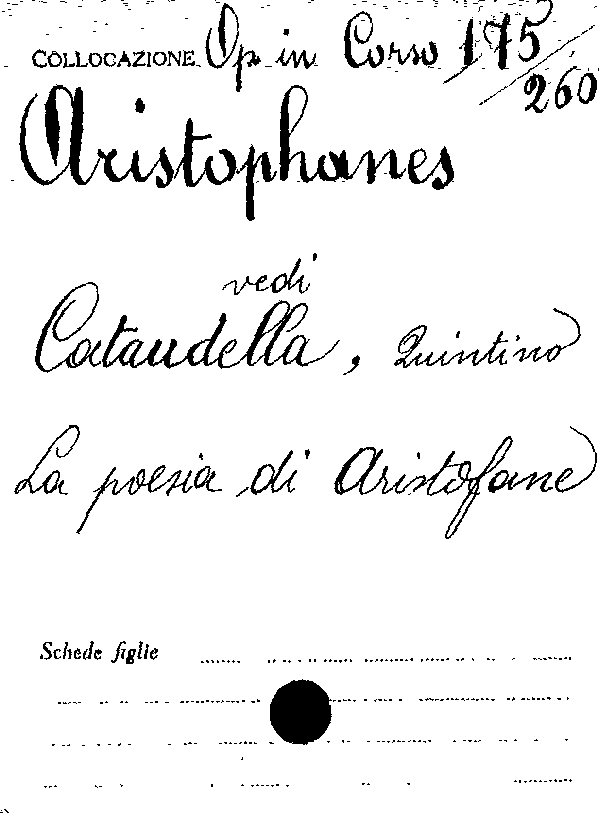 COLLOCAZIONE Op in Corso 175/260
Aristophanes
vedi
Cataudella, Quintino
La poesia di Aristofane
Schede figlie